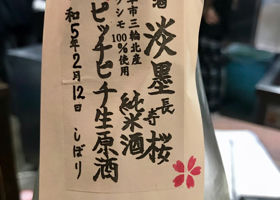 酒
淡墨桜
長寺
純米酒
市三輪北産
ノシモ 100%使用
ピッチピチ生原酒
和5年2月12日 しぼり